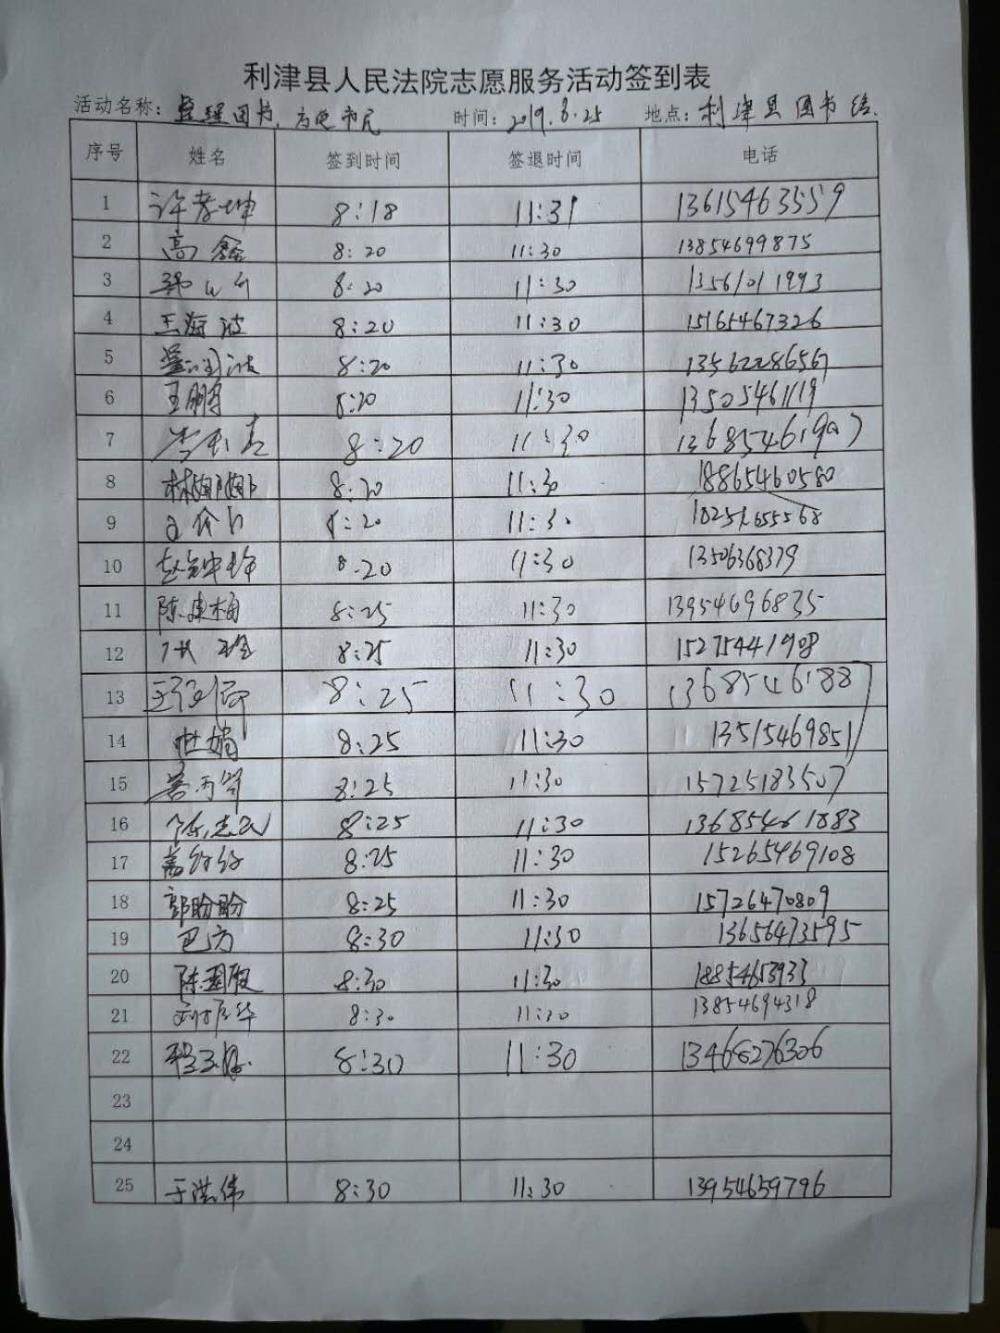 利津县人民法院志愿服务活动签到表
活动名称：整理图书、方便市民 时间：2019.8.25 地点：利津县图书馆
序号 姓名 签到时间 签退时间 电话
1 许孝坤 8:18 11:31 13615463559
2 高鑫 8:20 11:30 13854699875
3 8:20 11:30 13561011993
4 王海波 8:20 11:30 15165467326
5 8:20 11:30 13562286567
6 王鹏 8:20 11:30 13505461119
7 8:20 11:30 13685461997
8 林娜娜 8:20 11:30 18865460580
9 8:20 11:30
10 8:20 11:30 13506368379
11 陈建楠 8:25 11:30 13954696835
12 8:25 11:30 15275441908
13 8:25 11:30 13685461887
14 世娟 8:25 11:30 13515469851
15 8:25 11:30 15725183507
16 8:25 11:30 13685461883
17 8:25 11:30 15265469108
18 郭盼盼 8:25 11:30 15726470809
19 巴方 8:30 11:30 13656473595
20 8:30 11:30 18854653933
21 8:30 11:30 13854694318
22 8:30 11:30 13468276306
23
24
25 于洪伟 8:30 11:30 13954659796